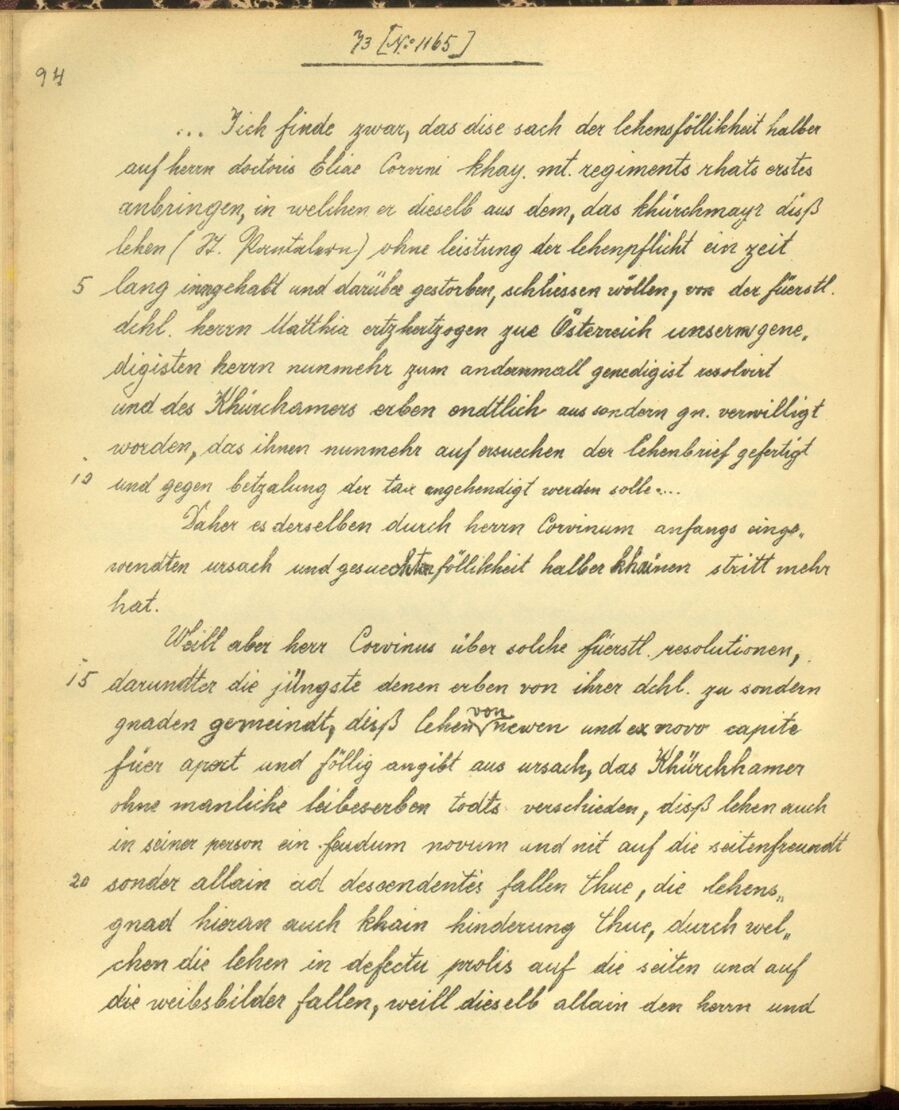 73 [No 1165]
94
... Ich finde zwar, das dise sach der lehensföllikheit halber
auf herrn doctoris Eliae Corvini khay. mt. regiments rhats erstes
anbringen, in welchen er dieselb aus dem, das khürchmayr diß
lehen (St. Pantaleon) ohne leistung der lehenpflicht ein zeit
5 lang inngehabt und darüber gestorben, schliessen wöllen, von der füerstl.
dchl. herrn Matthia ertzhertzogen zue Österreich unserm gene„
digisten herrn nunmehr zum andernmall genedigist resolvirt
und des Khürchamers erben endtlich aus sondern gn. verwilligt
worden, das ihnen nunmehr auf ersuechen der lehenbrief gefertigt
10 und gegen betzalung der tax angehendigt werden solle....
Daher es derselben durch herrn Corvinum anfangs einge„
wendten ursach und gesuechten föllikheit halber khainen stritt mehr
hat.
Weill aber herr Corvinus über solche füerstl. resolutionen,
15 darundter die jüngste denen erben von ihrer dchl. zu sondern
gnaden gemeindt, diß lehen von newen und ex novo capite
füer apert und föllig angibt aus ursach, das Khürchhamer
ohne manliche leibeserben todts verschieden, diß lehen auch
in seiner person ein feudum novum und nit auf die seitenfreundt
20 sonder allain ad descendentes fallen thue, die lehens„
gnad hieran auch khain hinderung thue, durch wel„
chen die lehen in defectu prolis auf die seiten und auf
die weibsbilder fallen, weill dieselb allain den herrn und